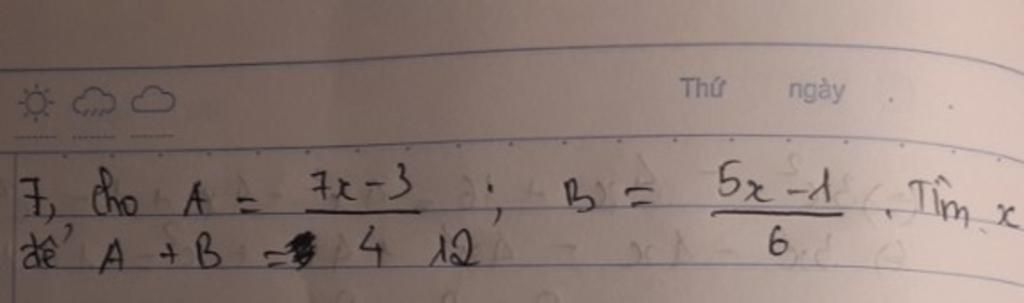 Thứ ngày
7, cho A = 7x - 3 / 4 ; B = 5x - 1 / 6 . Tìm x
để A + B = 12